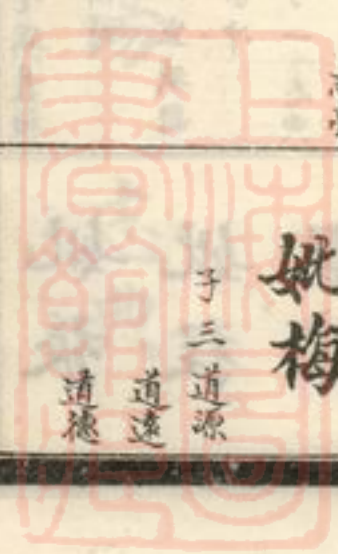 妣梅
子三道源
道遠
道德